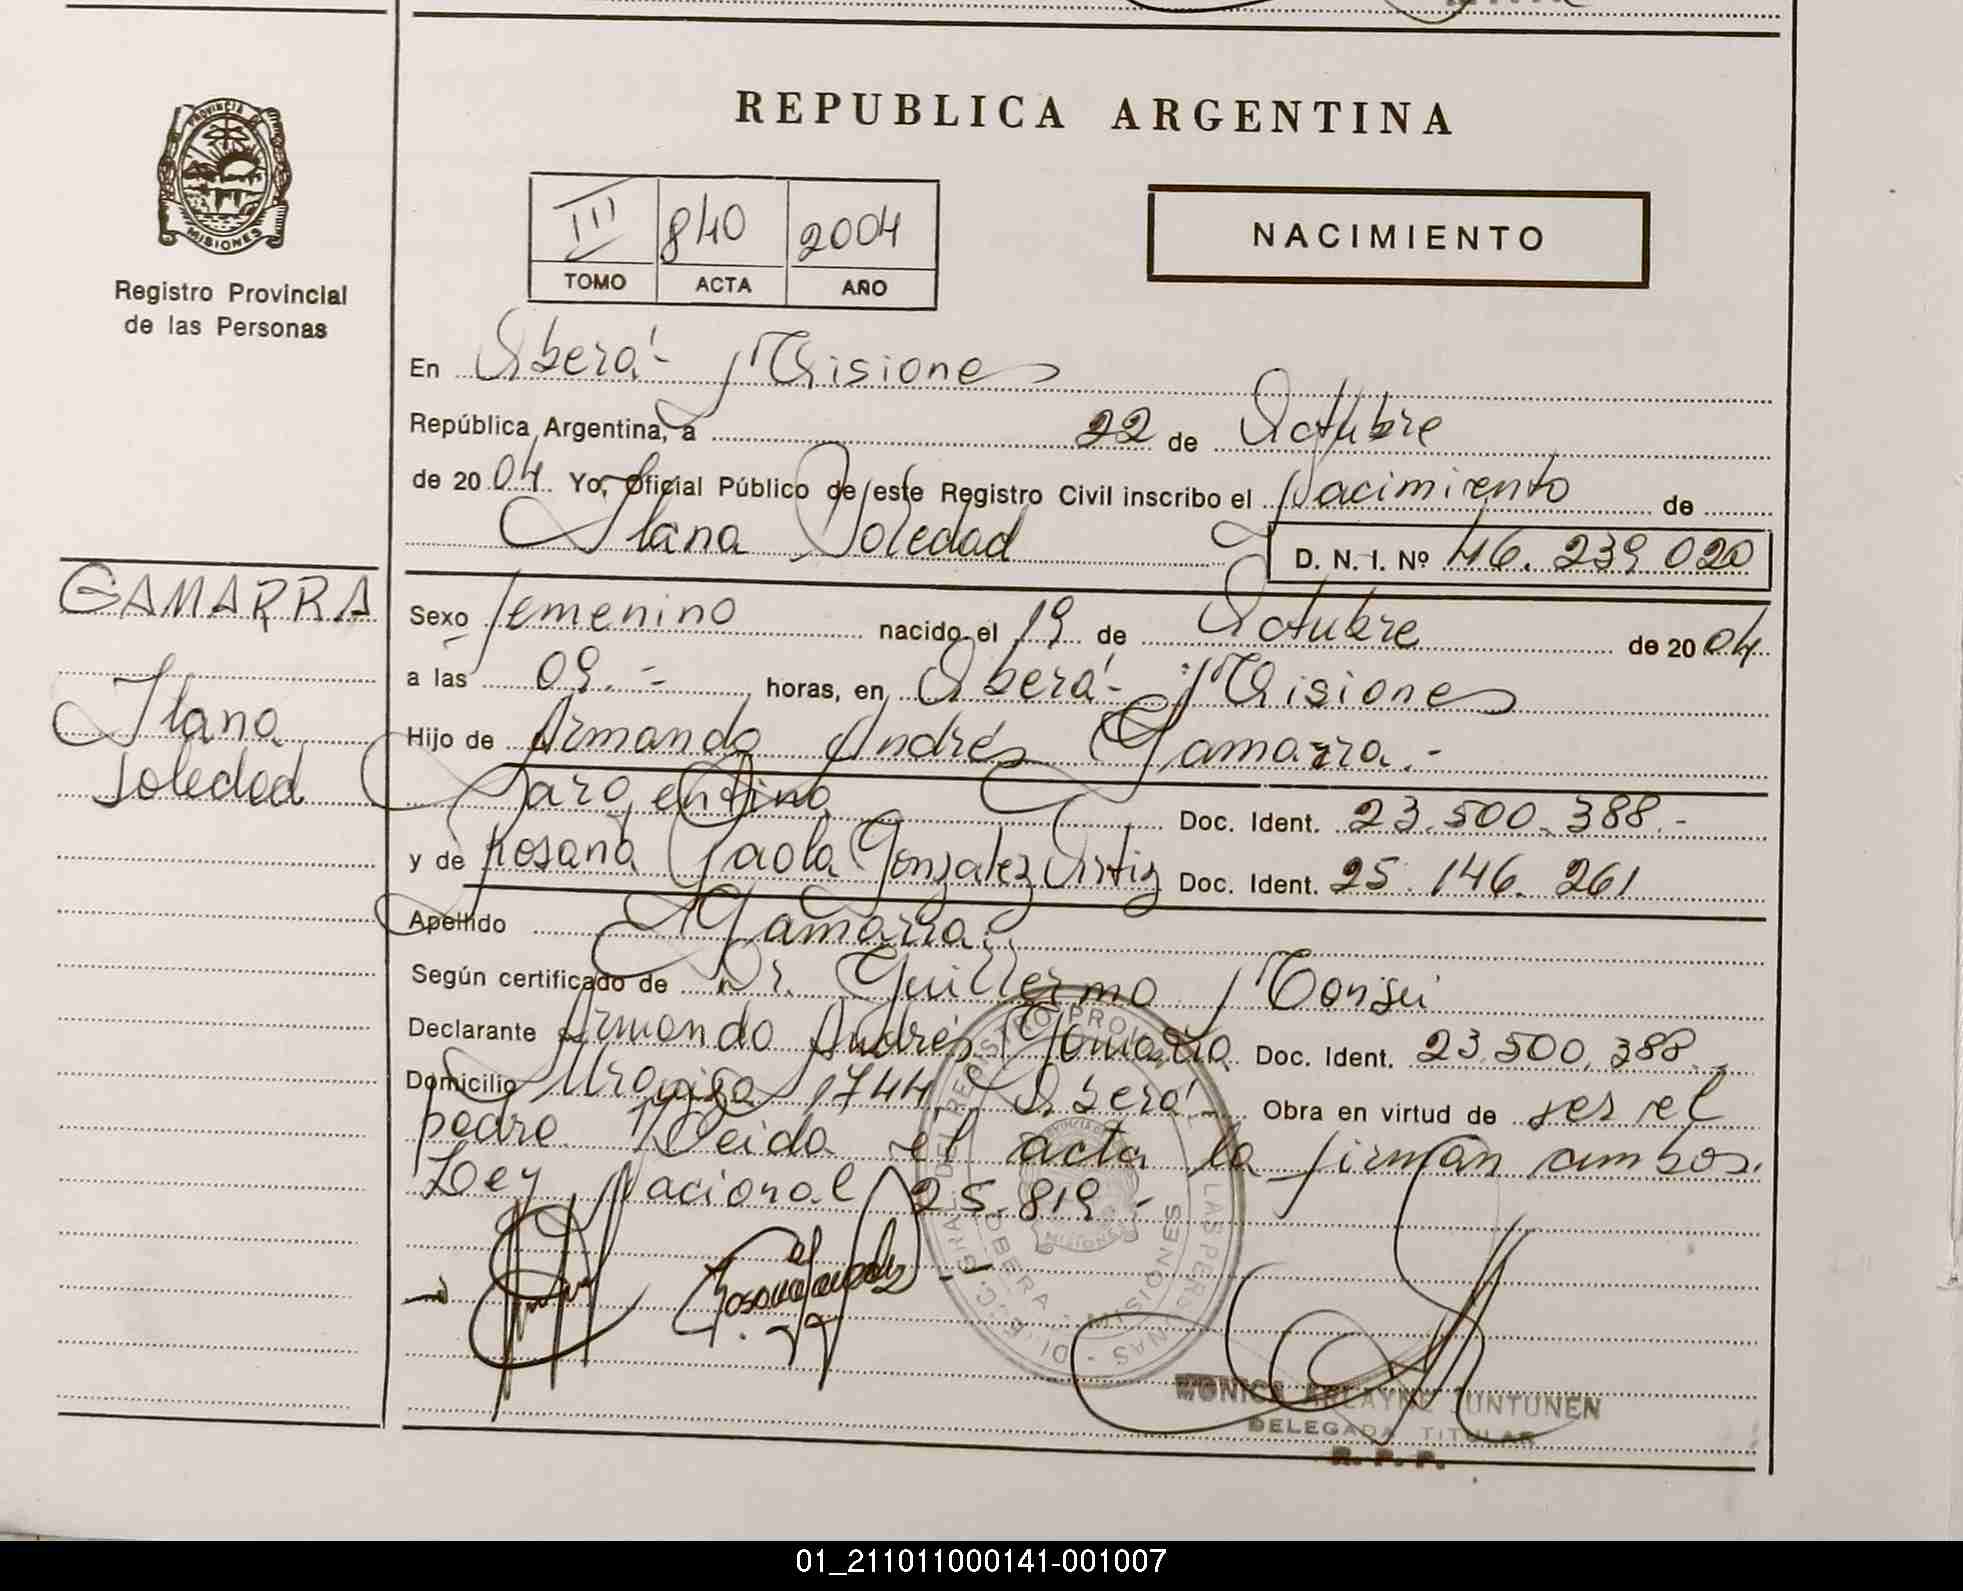 REPUBLICA ARGENTINA
PROVINCIA DE
MISIONES
Registro Provincial
de las Personas
III 840 2004
TOMO ACTA AÑO
NACIMIENTO
En Oberá - Misiones
República Argentina, a 22 de Octubre
de 2004 Yo, Oficial Público de este Registro Civil inscribo el Nacimiento de
Ilana Soledad D. N. I. Nº 46.239020
GAMARRA
Ilana
Soledad
Sexo femenino nacido el 19 de Octubre de 2004
a las 09.- horas, en Oberá - Misiones
Hijo de Armando Andrés Gamarra.-
argentino Doc. Ident. 23.500.388.-
y de Rosana Paola Gonzalez Ortiz Doc. Ident. 25.146.261
Apellido Gamarra
Según certificado de Dr. Guillermo
Declarante Armando Andrés Gamarra Doc. Ident. 23.500.388.-
Domicilio Urquiza 1744 Oberá - Obra en virtud de ser el
padre. Leida el acta la firman ambos.
Ley Nacional 25.819.-
OBERA - MISIONES
JUNTUNEN
DELEGADA TITULAR
R. P. P.
01_211011000141-001007